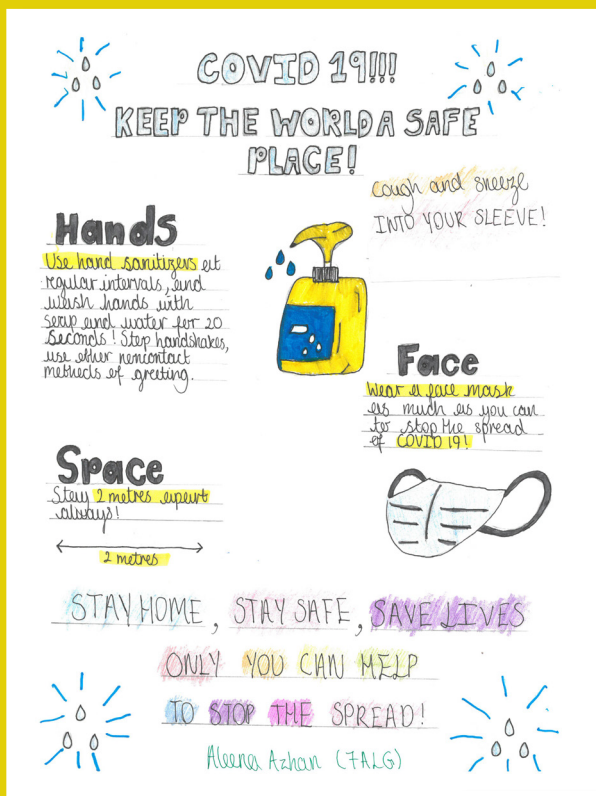 COVID 19!!!
KEEP THE WORLD A SAFE
PLACE!
cough and sneeze
INTO YOUR SLEEVE!
Hands
Use hand sanitizers at
regular intervals, and
wash hands with
soap and water for 20
seconds! Stop handshakes,
use other noncontact
methods of greeting.
Face
Wear a face mask
as much as you can
to stop the spread
of COVID 19!
Space
Stay 2 metres apart
always!
2 metres
STAY HOME, STAY SAFE, SAVE LIVES
ONLY YOU CAN HELP
TO STOP THE SPREAD!
Aleena Azhan (7ALG)